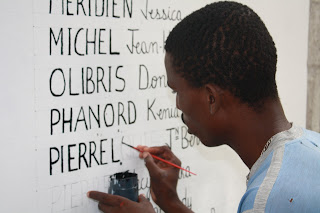 MERIDIEN Jessica
MICHEL Jean-
OLIBRIS Don
PHANORD Keni
PIERREL